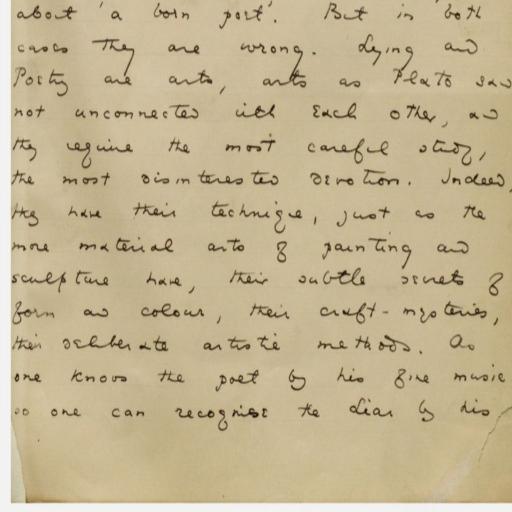 about 'a born poet'. But in both
cases they are wrong. Lying and
Poetry are arts, arts as Plato saw
not unconnected with each other, and
they require the most careful study,
the most disinterested devotion. Indeed,
they have their technique, just as the
more material arts of painting and
sculpture have, their subtle secrets of
form and colour, their craft-mysteries,
their deliberate artistic methods. As
one knows the poet by his fine music
so one can recognise the liar by his